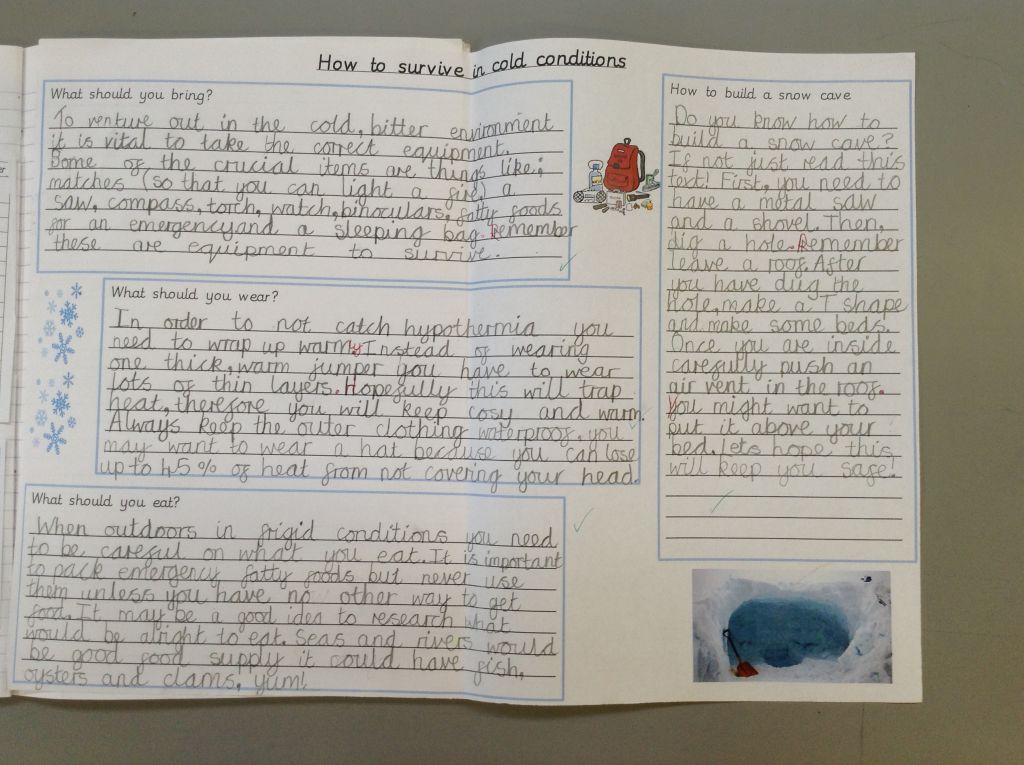 How to survive in cold conditions
What should you bring?
To venture out in the cold, bitter environment
it is vital to take the correct equipment.
Some of the crucial items are things like:
matches (so that you can light a fire) a
saw, compass, torch, watch, binoculars, fatty foods
for an emergency and a sleeping bag. Remember
these are equipment to survive.
What should you wear?
In order to not catch hypothermia you
need to wrap up warm. Instead of wearing
one thick, warm jumper you have to wear
lots of thin layers. Hopefully this will trap
heat, therefore you will keep cosy and warm.
Always keep the outer clothing waterproof. you
may want to wear a hat because you can lose
up to 45% of heat from not covering your head.
What should you eat?
When outdoors in frigid conditions you need
to be careful on what you eat. It is important
to pack emergency fatty foods but never use
them unless you have no other way to get
food. It may be a good idea to research what
would be alright to eat. Seas and rivers would
be good food supply it could have fish,
oysters and clams, yum!
How to build a snow cave
Do you know how to
build a snow cave?
If not just read this
text! First, you need to
have a metal saw
and a shovel. Then,
dig a hole. Remember
leave a roof. After
you have dug the
hole, make a T shape
and make some beds.
Once you are inside
carefully push an
air vent in the roof.
You might want to
put it above your
bed. Lets hope this
will keep you safe!